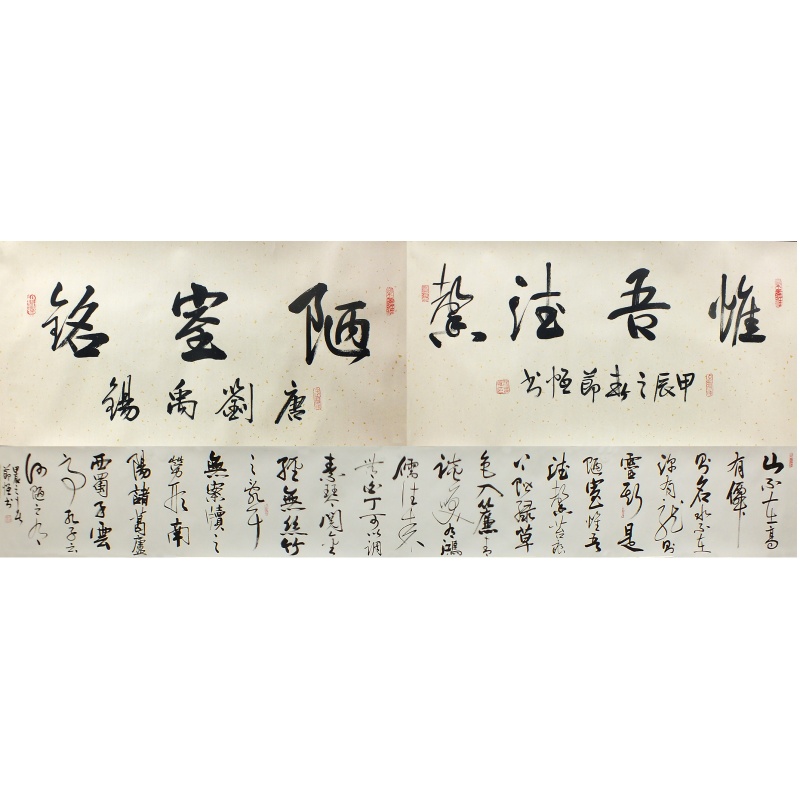 陋室銘
唐劉禹錫
惟吾德馨
甲辰之春節恆书
山不在高
有僊
則名水不在
深有龍則
靈斯是
陋室惟吾
德馨苔痕
上階綠草
色入簾青
談笑有鴻
儒往來
無白丁可以調
素琴閱金
經無絲竹
之亂耳
無案牘之
勞形南
陽諸葛廬
西蜀子雲
亭孔子云
何陋之有
甲辰之春
節恆书